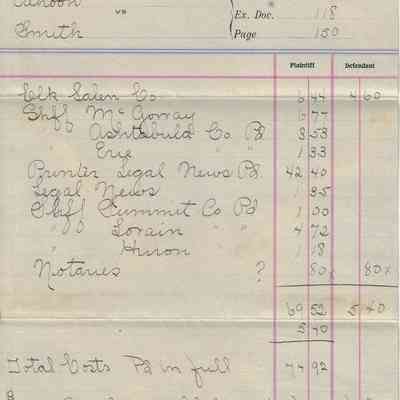 Calhoon
vs
Smith
Ex. Doc. 118
Page 150
Plaintiff Defendant
Clk Salen Co. 6 44 4 60
Shff McGorray 6 77
" Ashtabula Co Pd 3 53
" Erie " " 1 33
Printer Legal News Pd. 42 40
Legal News 1 35
Shff Summit Co Pd 1 00
" Lorain " " 4 72
" Huron " 1 18
Notaries ? 80 80
69 52 5 40
5 40
74 92
Total Costs Pd in full